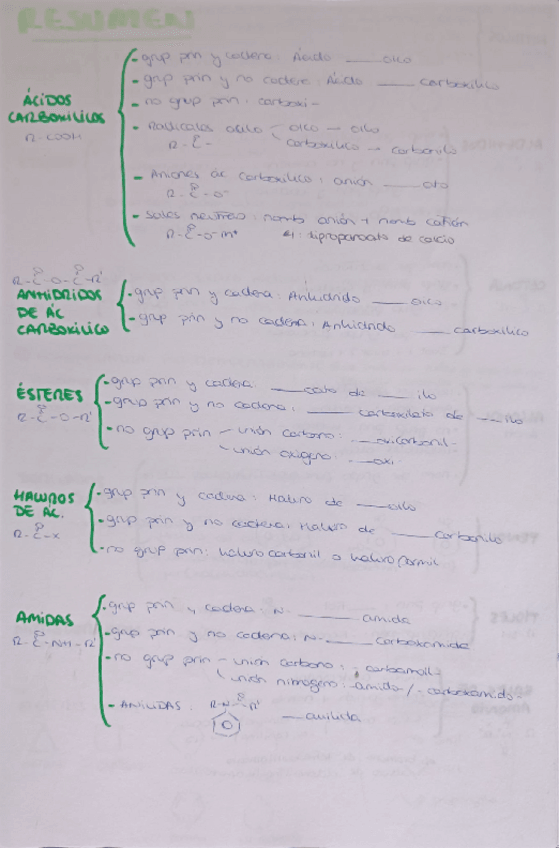 RESUMEN
ÁCIDOS CARBOXILICOS
R-COOH
- grup prin y cadena: Ácido ___ oico
- grup prin y no cadena: Ácido ___ carboxílico
- no grup prin: carboxi-
- Radicales acilo - oico → oilo
carboxílico → carbonilo
R-C-
O
- Aniones ác carboxílico: anión ___ ato
R-C-O⁻
O
- Sales neutras: nomb anión + nomb catión
R-C-O⁻M⁺
O
dipropanoato de calcio
R-C-O-C-R'
O O
ANHIDRIDOS DE ÁC CARBOXILICO
- grup prin y cadena: Anhidrido ___ oico
- grup prin y no cadena: Anhidrido ___ carboxílico
ÉSTERES
R-C-O-R'
O
- grup prin y cadena: ___ oato de ___ ilo
- grup prin y no cadena: ___ carboxilato de ___ ilo
- no grup prin - unión carbono: ___ oxicarbonil-
unión oxígeno: ___ oxi-
HALUROS DE AC.
R-C-X
O
- grup prin y cadena: Haluro de ___ oilo
- grup prin y no cadena: Haluro de ___ carbonilo
- no grup prin: halurocarbonil o haluroformil
AMIDAS
R-C-NH-R'
O
- grup prin y cadena: N- ___ amida
- grup prin y no cadena: N- ___ carboxamida
- no grup prin - unión carbono: - carbamoil-
unión nitrógeno: -amido / - carboxamido-
- ANILIDAS: R-N-C-R'
O
___ anilida